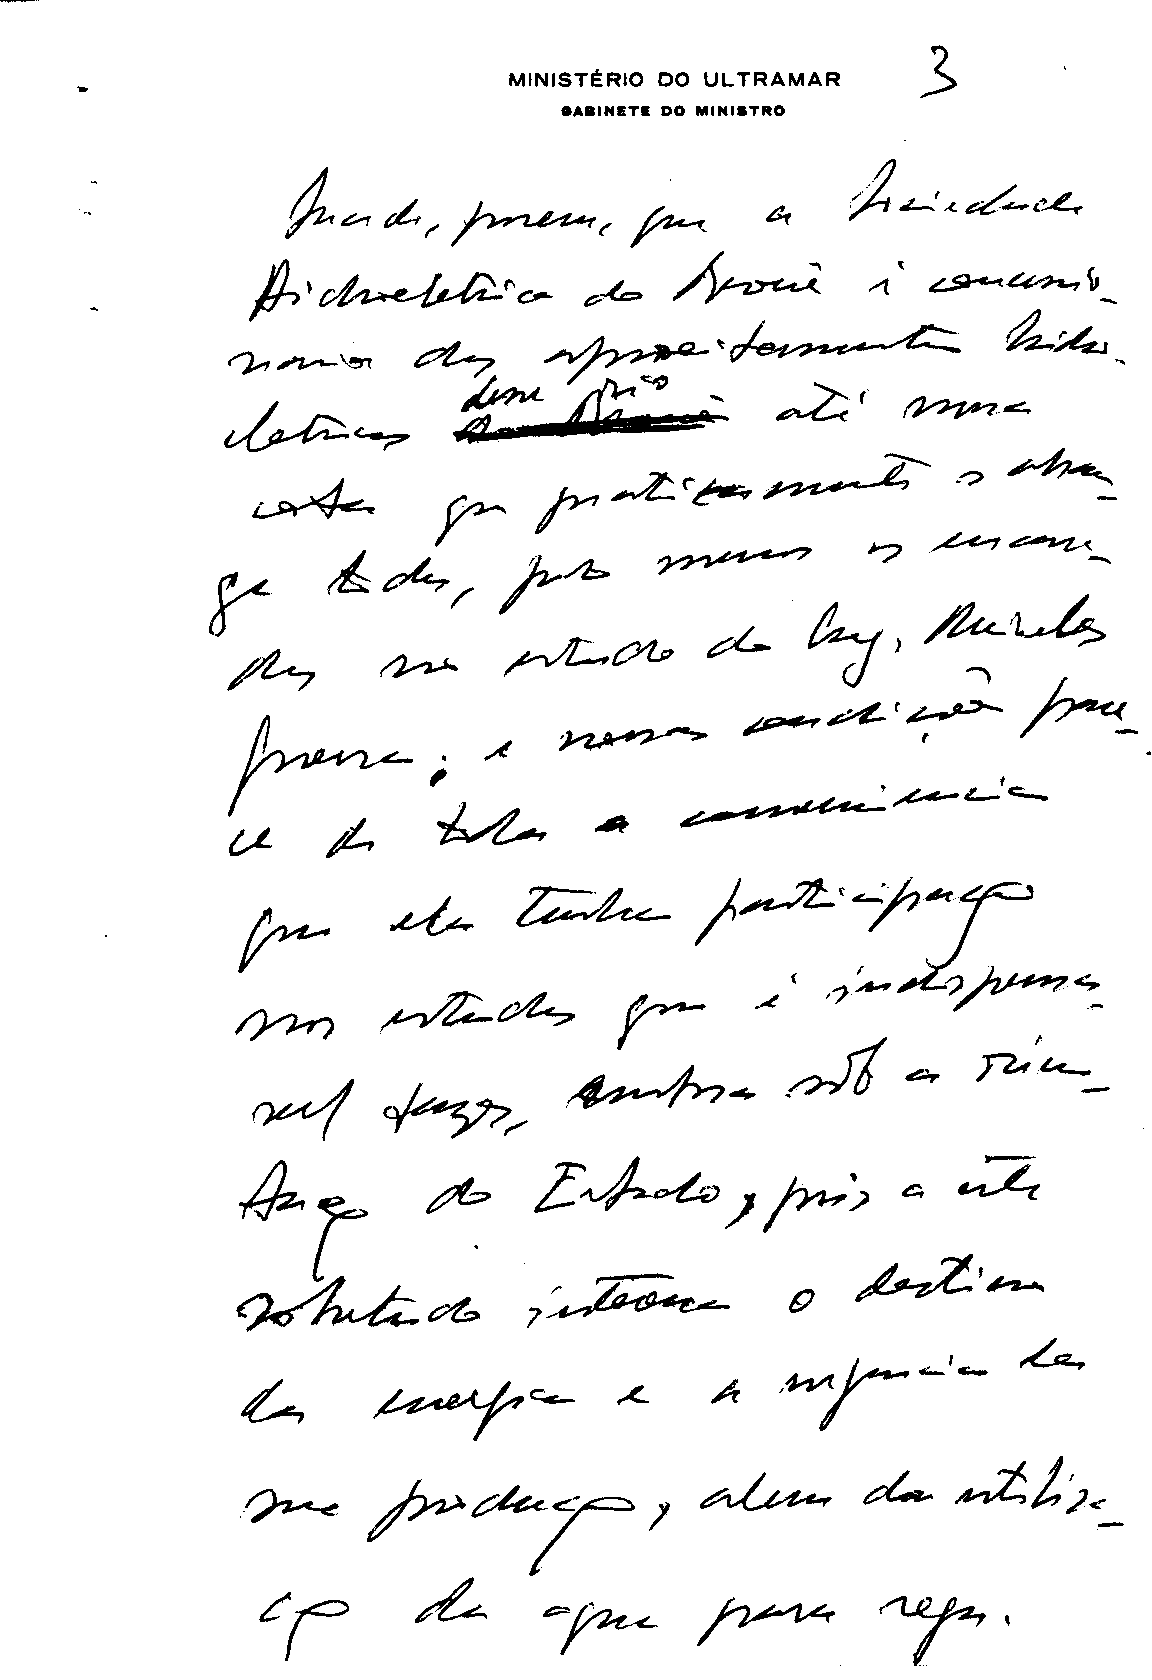 MINISTÉRIO DO ULTRAMAR 3
GABINETE DO MINISTRO
porem, que a Sociedade
Hidroeletrica do Revué é concessio-
naria dos aproveitamentos hidro-
eletricos desse rio até uma
cota que praticamente os abran-
ge todos, pelo menos os encara-
dos no estudo do Eng. Trigo de
Morais; e nessas condições pare-
ce de toda a conveniencia
que ela tenha participação
nos estudos que é indispensa-
vel fazer, embora sob a orien-
tação do Estado, pois a este
sobretudo interessa o destino
da energia e a urgencia da
sua produção, alem da utiliza-
ção da agua para rega.